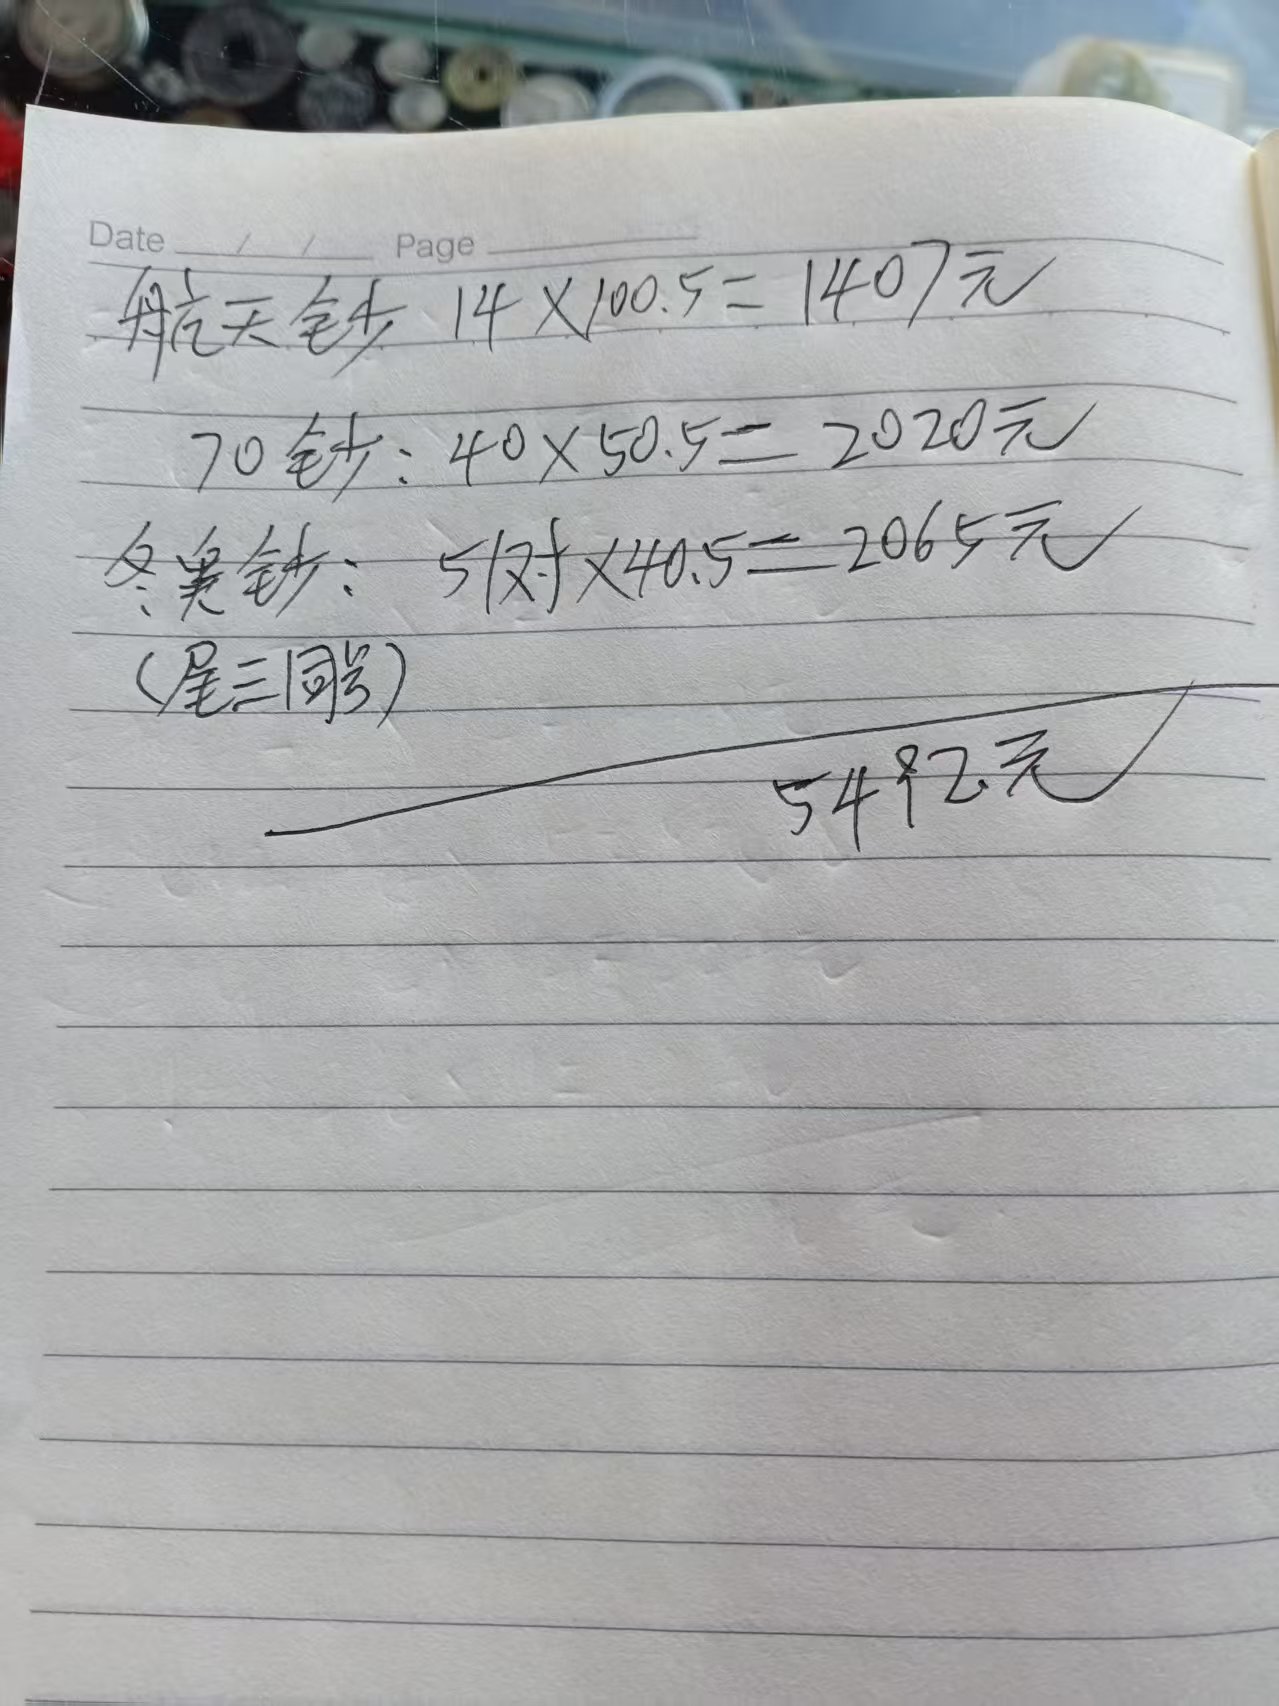 Date / / Page
航天钞 14×100.5=1407元
70钞：40×50.5=2020元
冬奥钞：51对×40.5=2065元
（尾三同号）
5492元